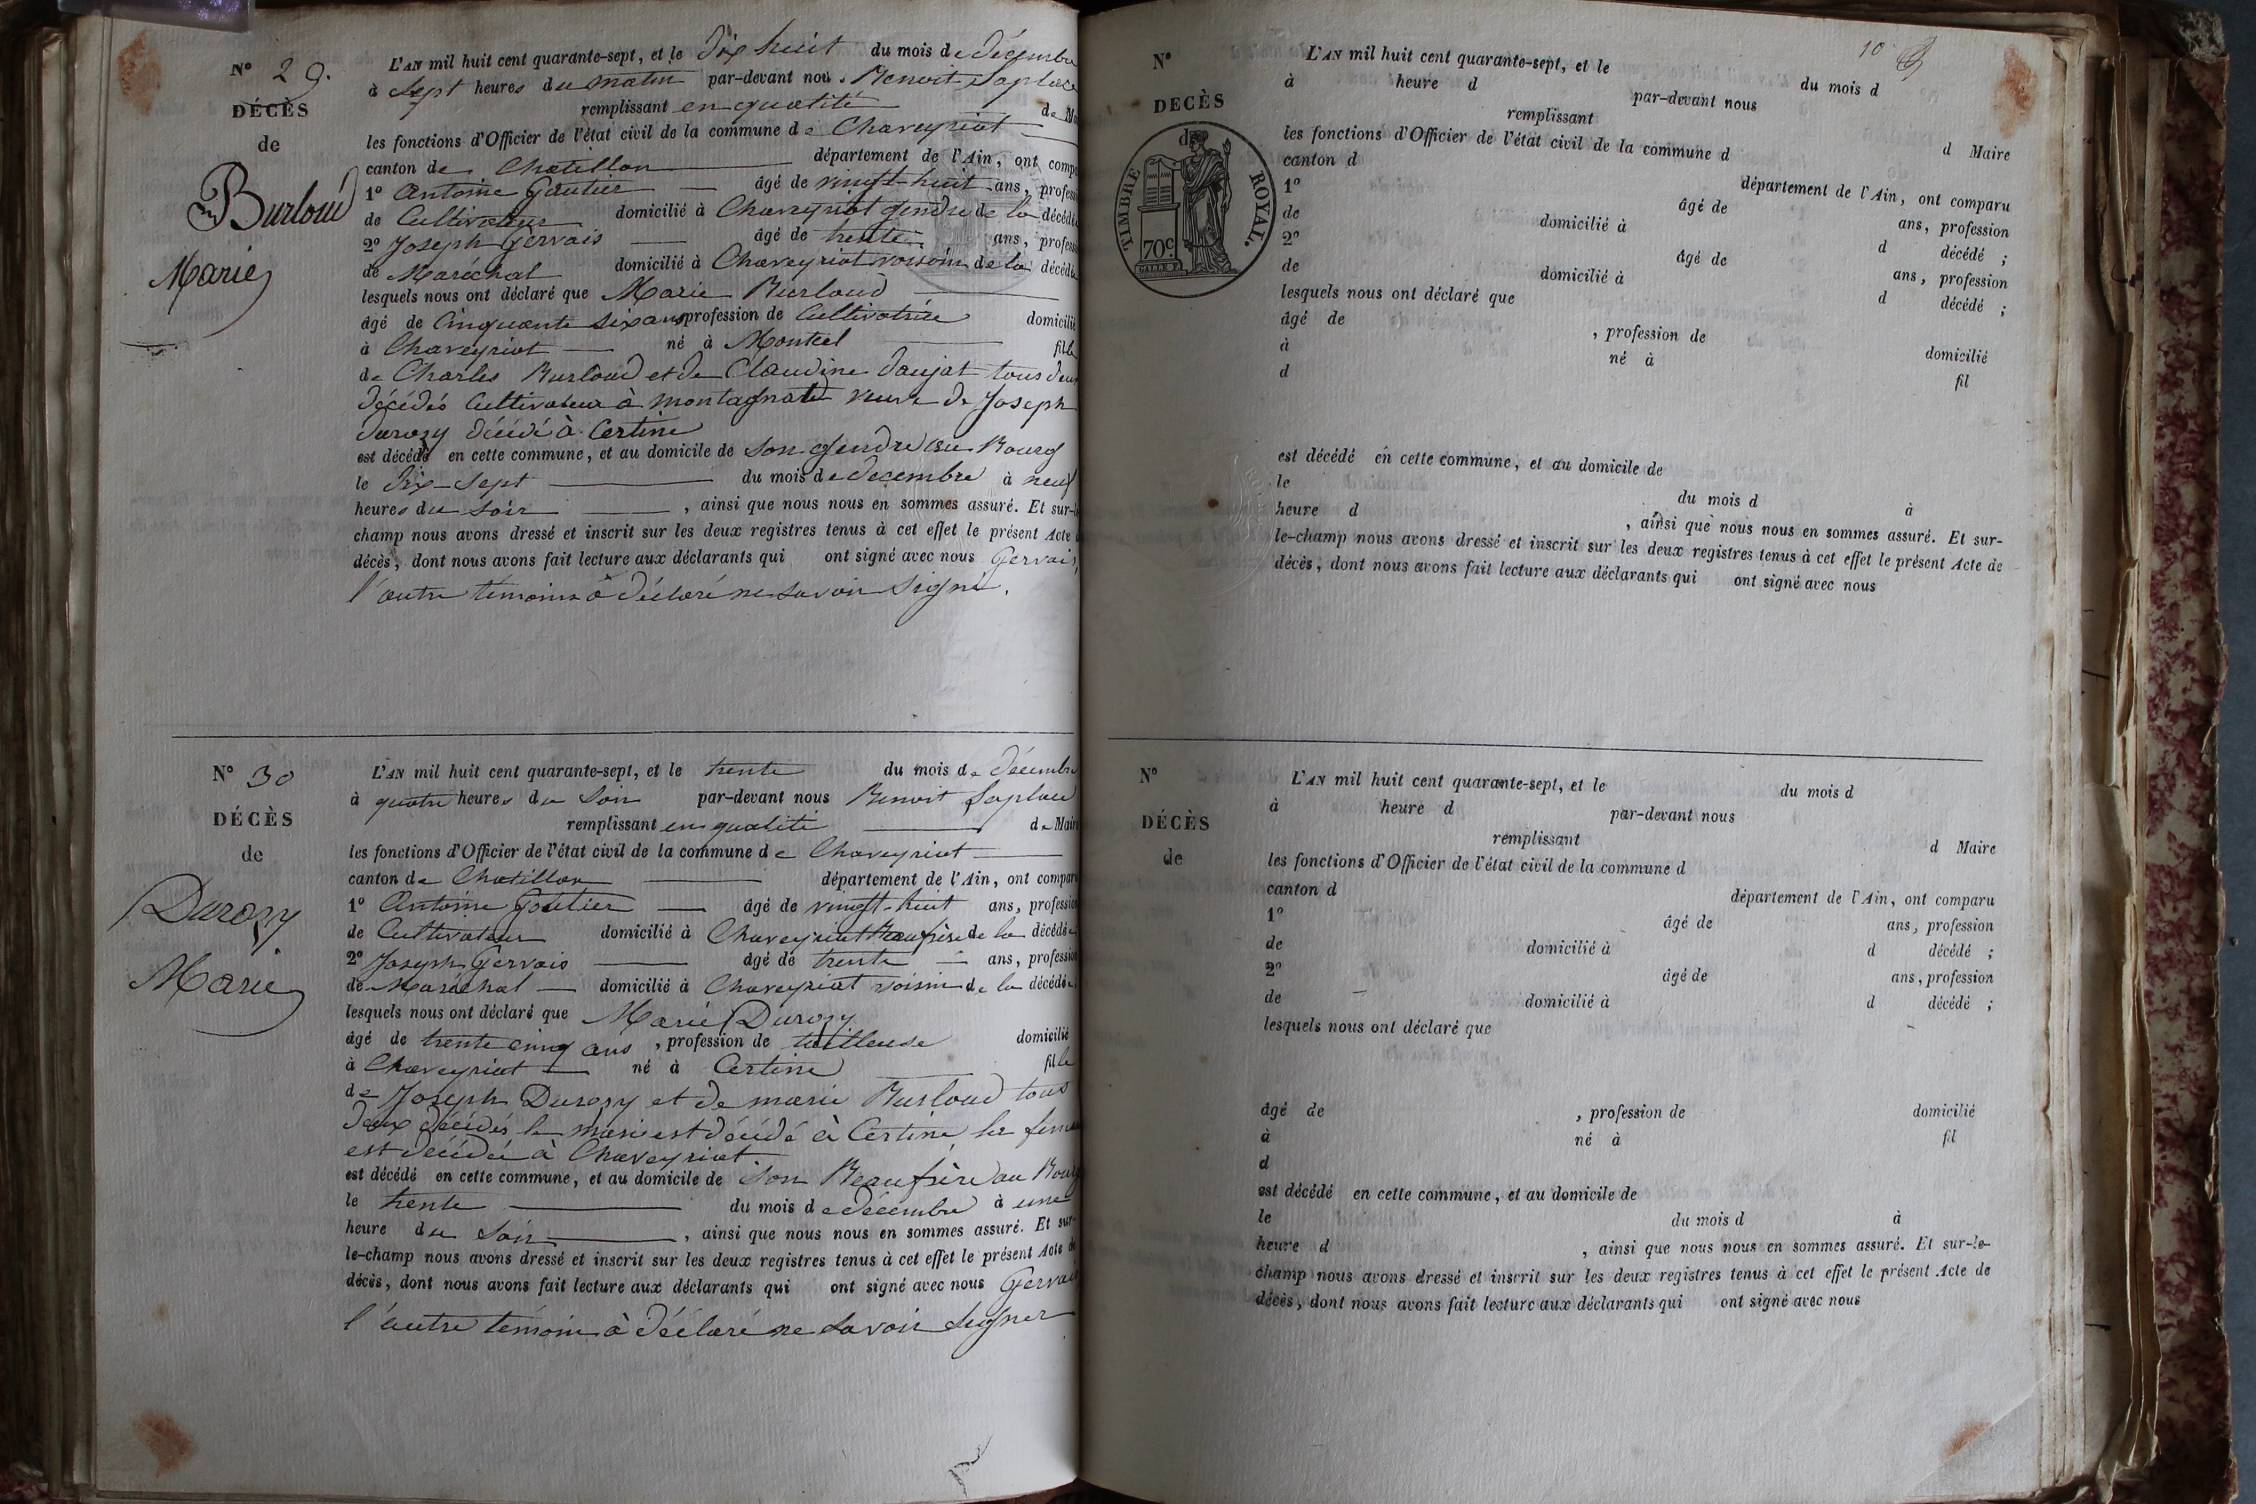 N° 29.
DÉCÈS
de
Burloud
Marie
L'AN mil huit cent quarante-sept, et le Dix huit du mois de Décembre
à Sept heures du matin par-devant nous Benoit
remplissant en qualité de M
les fonctions d'Officier de l'état civil de la commune de Chaveyriat
canton de Chatillon département de l'Ain, ont compa
1° Antoine Gautier âgé de vingt-huit ans, profess
de Cultivateur domicilié à Chaveyriat gendre de la décédé
2° Joseph Gervais âgé de trente ans, profess
de Maréchal domicilié à Chaveyriat voisin de la décédé
lesquels nous ont déclaré que Marie Burloud
âgé de Cinquante six ans profession de Cultivatrice domicilié
à Chaveyriat né à Montcel fille
de Charles Burloud et de Claudine Daujat tous deux
décédés Cultivateur à montagnat veuve de Joseph
Durozy décédé à Certine
est décédé en cette commune, et au domicile de son gendre au Bourg
le Dix-Sept du mois de decembre à neuf
heures du Soir , ainsi que nous nous en sommes assuré. Et sur-le
champ nous avons dressé et inscrit sur les deux registres tenus à cet effet le présent Acte d
décès, dont nous avons fait lecture aux déclarants qui ont signé avec nous Gervais,
l'autre témoin à déclaré ne savoir signé.
N° 30
DÉCÈS
de
Durozy
Marie
L'AN mil huit cent quarante-sept, et le trente du mois de décembre
à quatre heures du Soir par-devant nous Benoit
remplissant en qualité de Maire
les fonctions d'Officier de l'état civil de la commune de Chaveyriat
canton de Chatillon département de l'Ain, ont comparu
1° Antoine Gautier âgé de vingt-huit ans, profession
de Cultivateur domicilié à Chaveyriat Beaufrère de la décédée
2° Joseph Gervais âgé de trente ans, profession
de Maréchal domicilié à Chaveyriat voisin de la décédée
lesquels nous ont déclaré que Marie Durozy
âgé de trente cinq ans , profession de tailleuse domicilié
à Chaveyriat né à Certine fille
de Joseph Durozy et de marie Burloud tous
deux décédés le mari est décédé à Certine la femme
est décédée à Chaveyriat
est décédé en cette commune, et au domicile de son Beaufrère au Bourg
le trente du mois de décembre à une
heure du Soir , ainsi que nous nous en sommes assuré. Et sur-
le-champ nous avons dressé et inscrit sur les deux registres tenus à cet effet le présent Acte de
décès, dont nous avons fait lecture aux déclarants qui ont signé avec nous Gervais
l'autre témoin à déclaré ne savoir signer
10
N°
DECÈS
de
TIMBRE ROYAL.
70c
L'AN mil huit cent quarante-sept, et le du mois d
à heure d par-devant nous
remplissant d Maire
les fonctions d'Officier de l'état civil de la commune d
canton d département de l'Ain, ont comparu
1° âgé de ans, profession
de domicilié à d décédé ;
2° âgé de ans, profession
de domicilié à d décédé ;
lesquels nous ont déclaré que
âgé de , profession de domicilié
à né à fil
d
est décédé en cette commune, et au domicile de
le du mois d à
heure d , ainsi que nous nous en sommes assuré. Et sur-
le-champ nous avons dressé et inscrit sur les deux registres tenus à cet effet le présent Acte de
décès, dont nous avons fait lecture aux déclarants qui ont signé avec nous
N°
DÉCÈS
de
L'AN mil huit cent quarante-sept, et le du mois d
à heure d par-devant nous
remplissant d Maire
les fonctions d'Officier de l'état civil de la commune d
canton d département de l'Ain, ont comparu
1° âgé de ans, profession
de domicilié à d décédé ;
2° âgé de ans, profession
de domicilié à d décédé ;
lesquels nous ont déclaré que
âgé de , profession de domicilié
à né à fil
d
est décédé en cette commune, et au domicile de
le du mois d à
heure d , ainsi que nous nous en sommes assuré. Et sur-le-
champ nous avons dressé et inscrit sur les deux registres tenus à cet effet le présent Acte de
décès, dont nous avons fait lecture aux déclarants qui ont signé avec nous